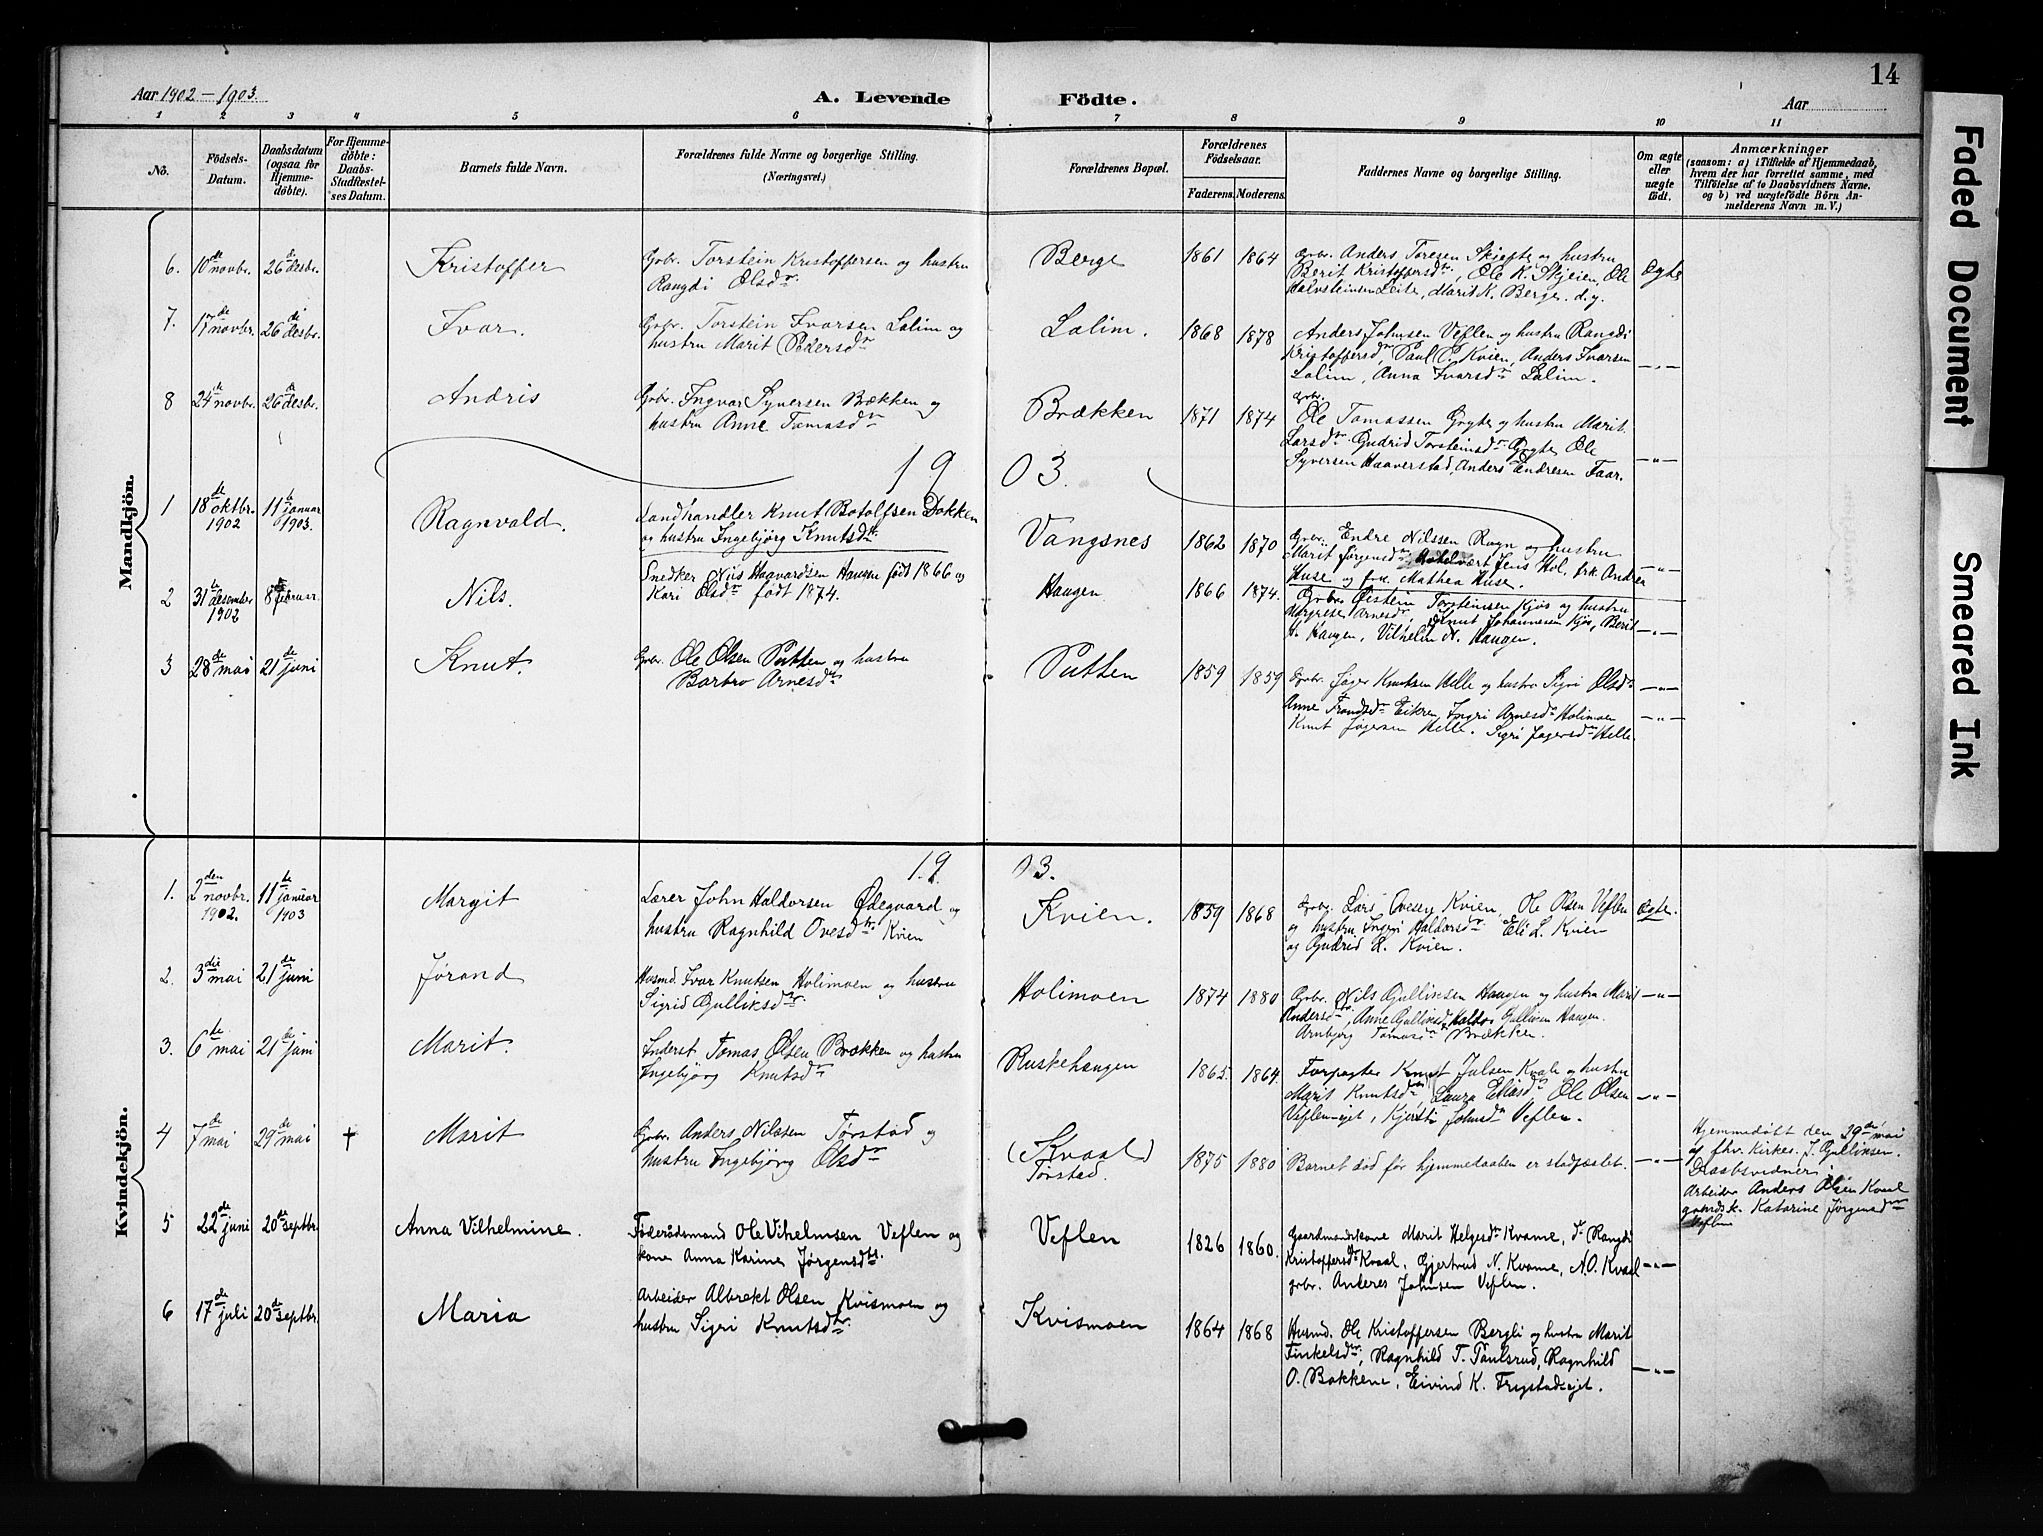 14
Aar 1902 – 1903.
A. Levende Födte.
Aar
1 2 3 4 5 6 7 8 9 10 11
No.
Födsels-Datum.
Daabsdatum (ogsaa for Hjemme-döbte).
For Hjemme-döbte: Daabs-Stadfæstel-ses Datum.
Barnets fulde Navn.
Forældrenes fulde Navne og borgerlige Stilling. (Næringsvei.)
Forældrenes Bopæl.
Forældrenes Födselsaar.
Faderens. Moderens.
Faddernes Navne og borgerlige Stilling.
Om ægte eller uægte födt.
Anmærkninger
(saasom: a) i Tilfælde af Hjemmedaab, hvem der har forrettet samme, med Tilföielse af to Daabsvidners Navne. og b) ved uægtefödte Börn An-melderens Navn m. V.)
Mandkjön.
6. 10de novbr. 26de desbr. Kristoffer
Gbr. Torstein Kristoffersen og hustru
Rangdi Olsdr
Berge 1861 1864
Gbr. Anders Toresen og hustru
Berit Kristoffersdr, Ole K. Skjeien, Ole
Halvsteinsen Leite, Marit K. Berge. d.y.
Ægte
7. 17de novbr. 26de desbr. Ivar.
Gbr. Torstein Ivarsen Lalim og
hustru Marit Pedersdr
Lalim. 1868 1878
Anders Johnsen Veflen og hustru Rangdi
Kristoffersdr, Paul P. Kvien, Anders Ivarsen
Lalim, Anna Ivarsdr Lalim.
—„—
8 24de novbr. 26de desbr. Andris
Gbr. Ingvar Syversen Brækken og
hustru Anne Tomasdr
Brækken 1871 1874
Gbr.
Ole Tomassen og hustru Marit
Larsdr Gudrid Torsteinsdr Ole
Syversen Haaverstad, Anders Endresen Faar.
—„—
1903.
1 18de oktbr. 1902 11te januar 1903. Ragnvald.
Landhandler Knut Botolfsen Dokken
og hustru Ingebjörg Knutsdtr
Vangsnes 1862 1870
Gbr. Endre Nilssen Rogn og hustru
Marit Jørgensdr Jens Hol, frk. Andrea
Huse og frk. Mathea Huse.
—„—
2 31te desember 1902 8 februar Nils.
Snedker Nils Haavardsen Haugen født 1866 og
Kari Olsdr født 1874.
Haugen 1866 1874.
Gbr. Øistein Torsteinsen Kjøs og hustru
Margrete Arnesdr, Knut Johannesen Kjøs, Berit
H. Haugen, Vilhelm N. Haugen.
—„—
3 28de mai 21de juni Knut.
Gbr. Ole Olsen Putten og hustru
Barbro Arnesdtr
Putten 1859 1859
Gbr. Jøger Knutsen Helle og hustru Sigri Olsdtr
Anne Trondsdr Eikren Ingri Arnesdr Holimoen
Knut Jøgersen Helle. Sigri Jøgersdr Helle.
—„—
—„—
Kvindekjön.
1903.
1. 2den novbr. 1902. 11te januar 1903 Margit
Lærer John Haldorsen Ødegaard og
hustru Ragnhild Ovesdtr Kvien
Kvien. 1859 1868
Gbr. Lars Ovesen Kvien, Ole Olsen Veflen
og hustru Ingri Haldorsdr Eli L. Kvien
og Gudrid L. Kvien.
Ægte.
2. 3die mai 21de juni Jørand
Husmd. Ivar Knutsen Holimoen og hustru
Sigrid Gulliksdtr
Holimoen 1874 1880
Gbr. Nils Gulliksen Haugen og hustru Marit
Andersdtr, Anne Gulliksdr Gulliksen Haugen.
Arnbjørg Tomasdr Brækken.
—„—
3. 6te mai 21de juni Marit.
Inderst Tomas Olsen Brækken og hustru
Ingebjörg Knutsdr
Ruskehaugen 1865. 1864.
Forpagter Knut Julsen Kvale og hustru
Marit Knutsdr Laura Eliasdr Ole Olsen
Veflen-eiet, Kjersti Johnsdr Veflen.
—„—
4 7de mai 29de mai † Marit
Gbr. Anders Nilssen Tørstad og
hustru Ingebjörg Olsdr
(Kvaal)
Tørstad.
1875 1880
Barnet død før hjemmedaaben er stadfæstet.
—„—
Hjemmedøbt den 29de mai
af fhv. Kirkes. J. Gulliksen.
Daabsvidner:
Arbeider Anders Olsen Kvaal
gaardsk. Katarine Jörgensdtr
Veflen
5 22de juni 20de septbr. Anna Vilhelmine.
Føderådsmand Ole Vilhelmsen Veflen og
kone Anna Karine Jørgensdtr.
Veflen 1826 1860.
Gaardmandskone Marit Helgesdtr Kvame, Rangdi
Kristoffersdtr Kvaal, Gjertrud N. Kvame, N.O. Kvaal
gbr. Anders Johnsen Veflen.
—„—
6 17de juli 20de septbr. Maria
Arbeider Albrekt Olsen Kvismoen og
hustru Sigri Knutsdtr.
Kvismoen 1864 1868
Husmd. Ole Kristoffersen Bergli og hustru Marit
Finkelsdtr, Ragnhild T. Paulsrud, Ragnhild
O. Bakkene, Eivind K. Trystadeiet.
—„—
Faded Document
Smeared Ink